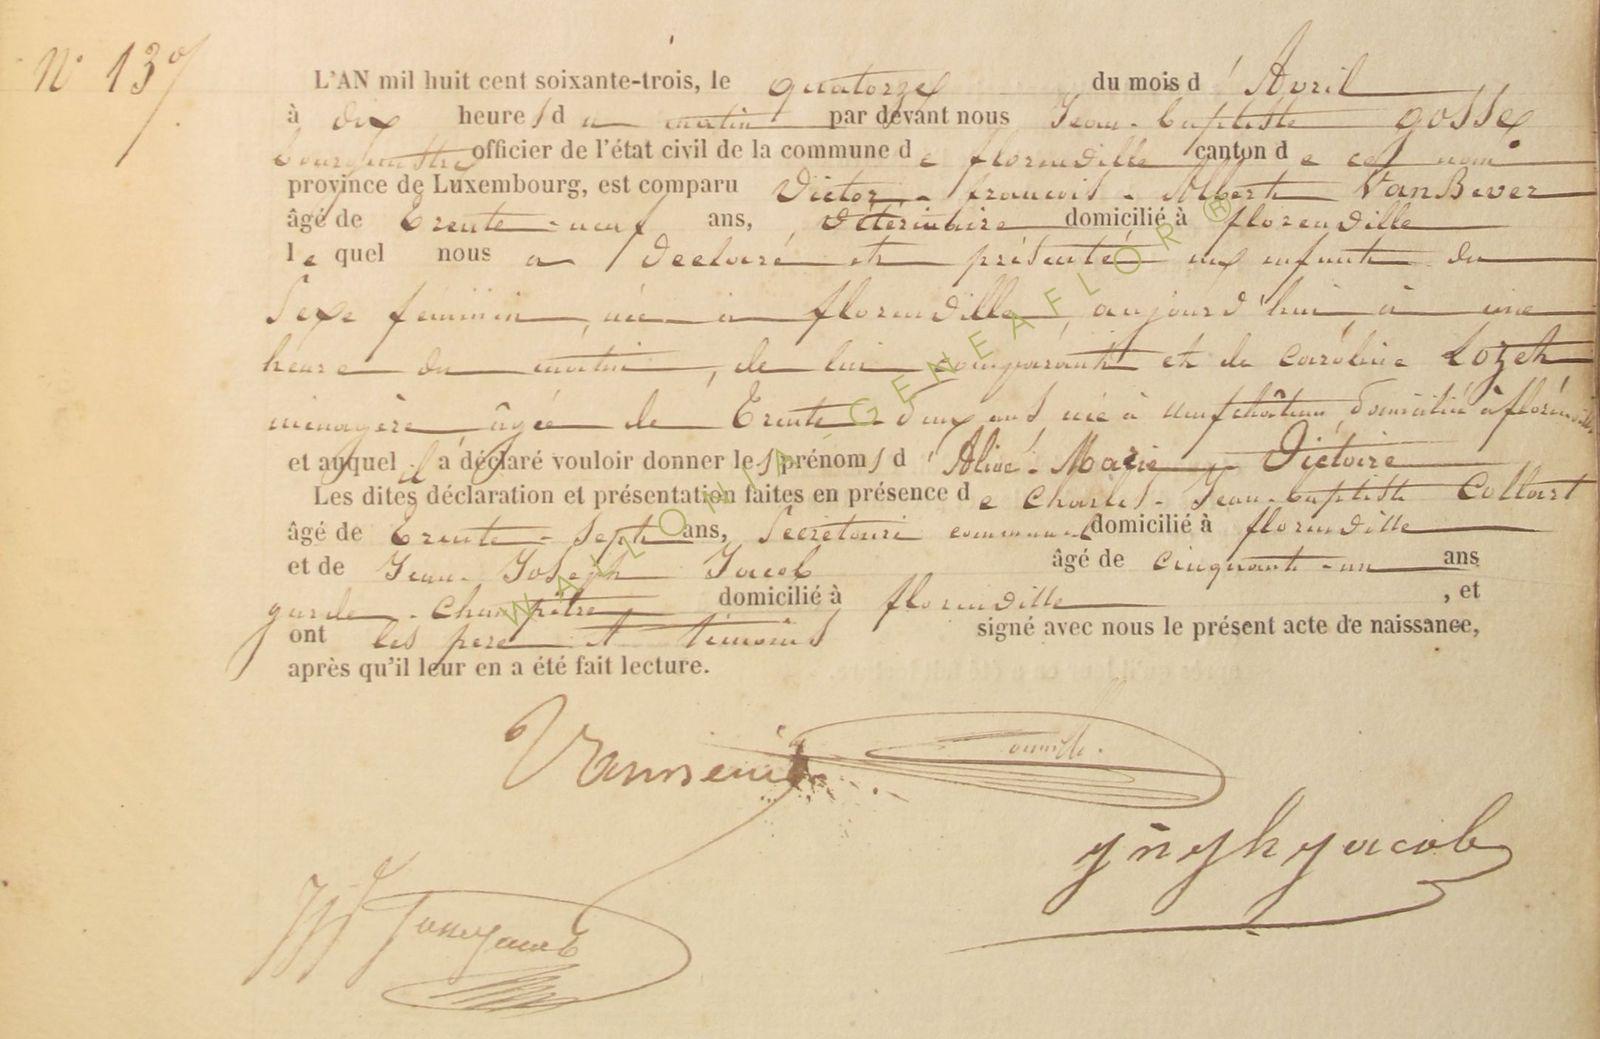 N° 13
L'AN mil huit cent soixante-trois, le quatorze du mois d'Avril
à dix heures du matin par devant nous Jean-baptiste gosse
bourgmestre officier de l'état civil de la commune de florenville canton de ce nom
province de Luxembourg, est comparu Victor-francois-Albert VanBever
âgé de Trente-neuf ans, Véterinaire domicilié à florenville
lequel nous a declaré et présenté une enfant du
Sexe féminin, née à florenville, aujourd'hui, à une
heure du matin, de lui comparant et de caroline Lozet
ménagère, âgée de Trente-deux ans, née à neufchâteau, domiciliée à florenville
et auquel il a déclaré vouloir donner les prénoms d'Alice-Marie-Victoire
Les dites déclaration et présentation faites en présence de charles-Jean-baptiste Collart
âgé de Trente-Sept ans, Secrétaire communal domicilié à florenville
et de Jean-Joseph Jacob âgé de cinquante-un ans
garde-champêtre domicilié à florenville, et
ont les pere et témoins signé avec nous le présent acte de naissance,
après qu'il leur en a été fait lecture.
WALLONIA-GENEAFLOR®